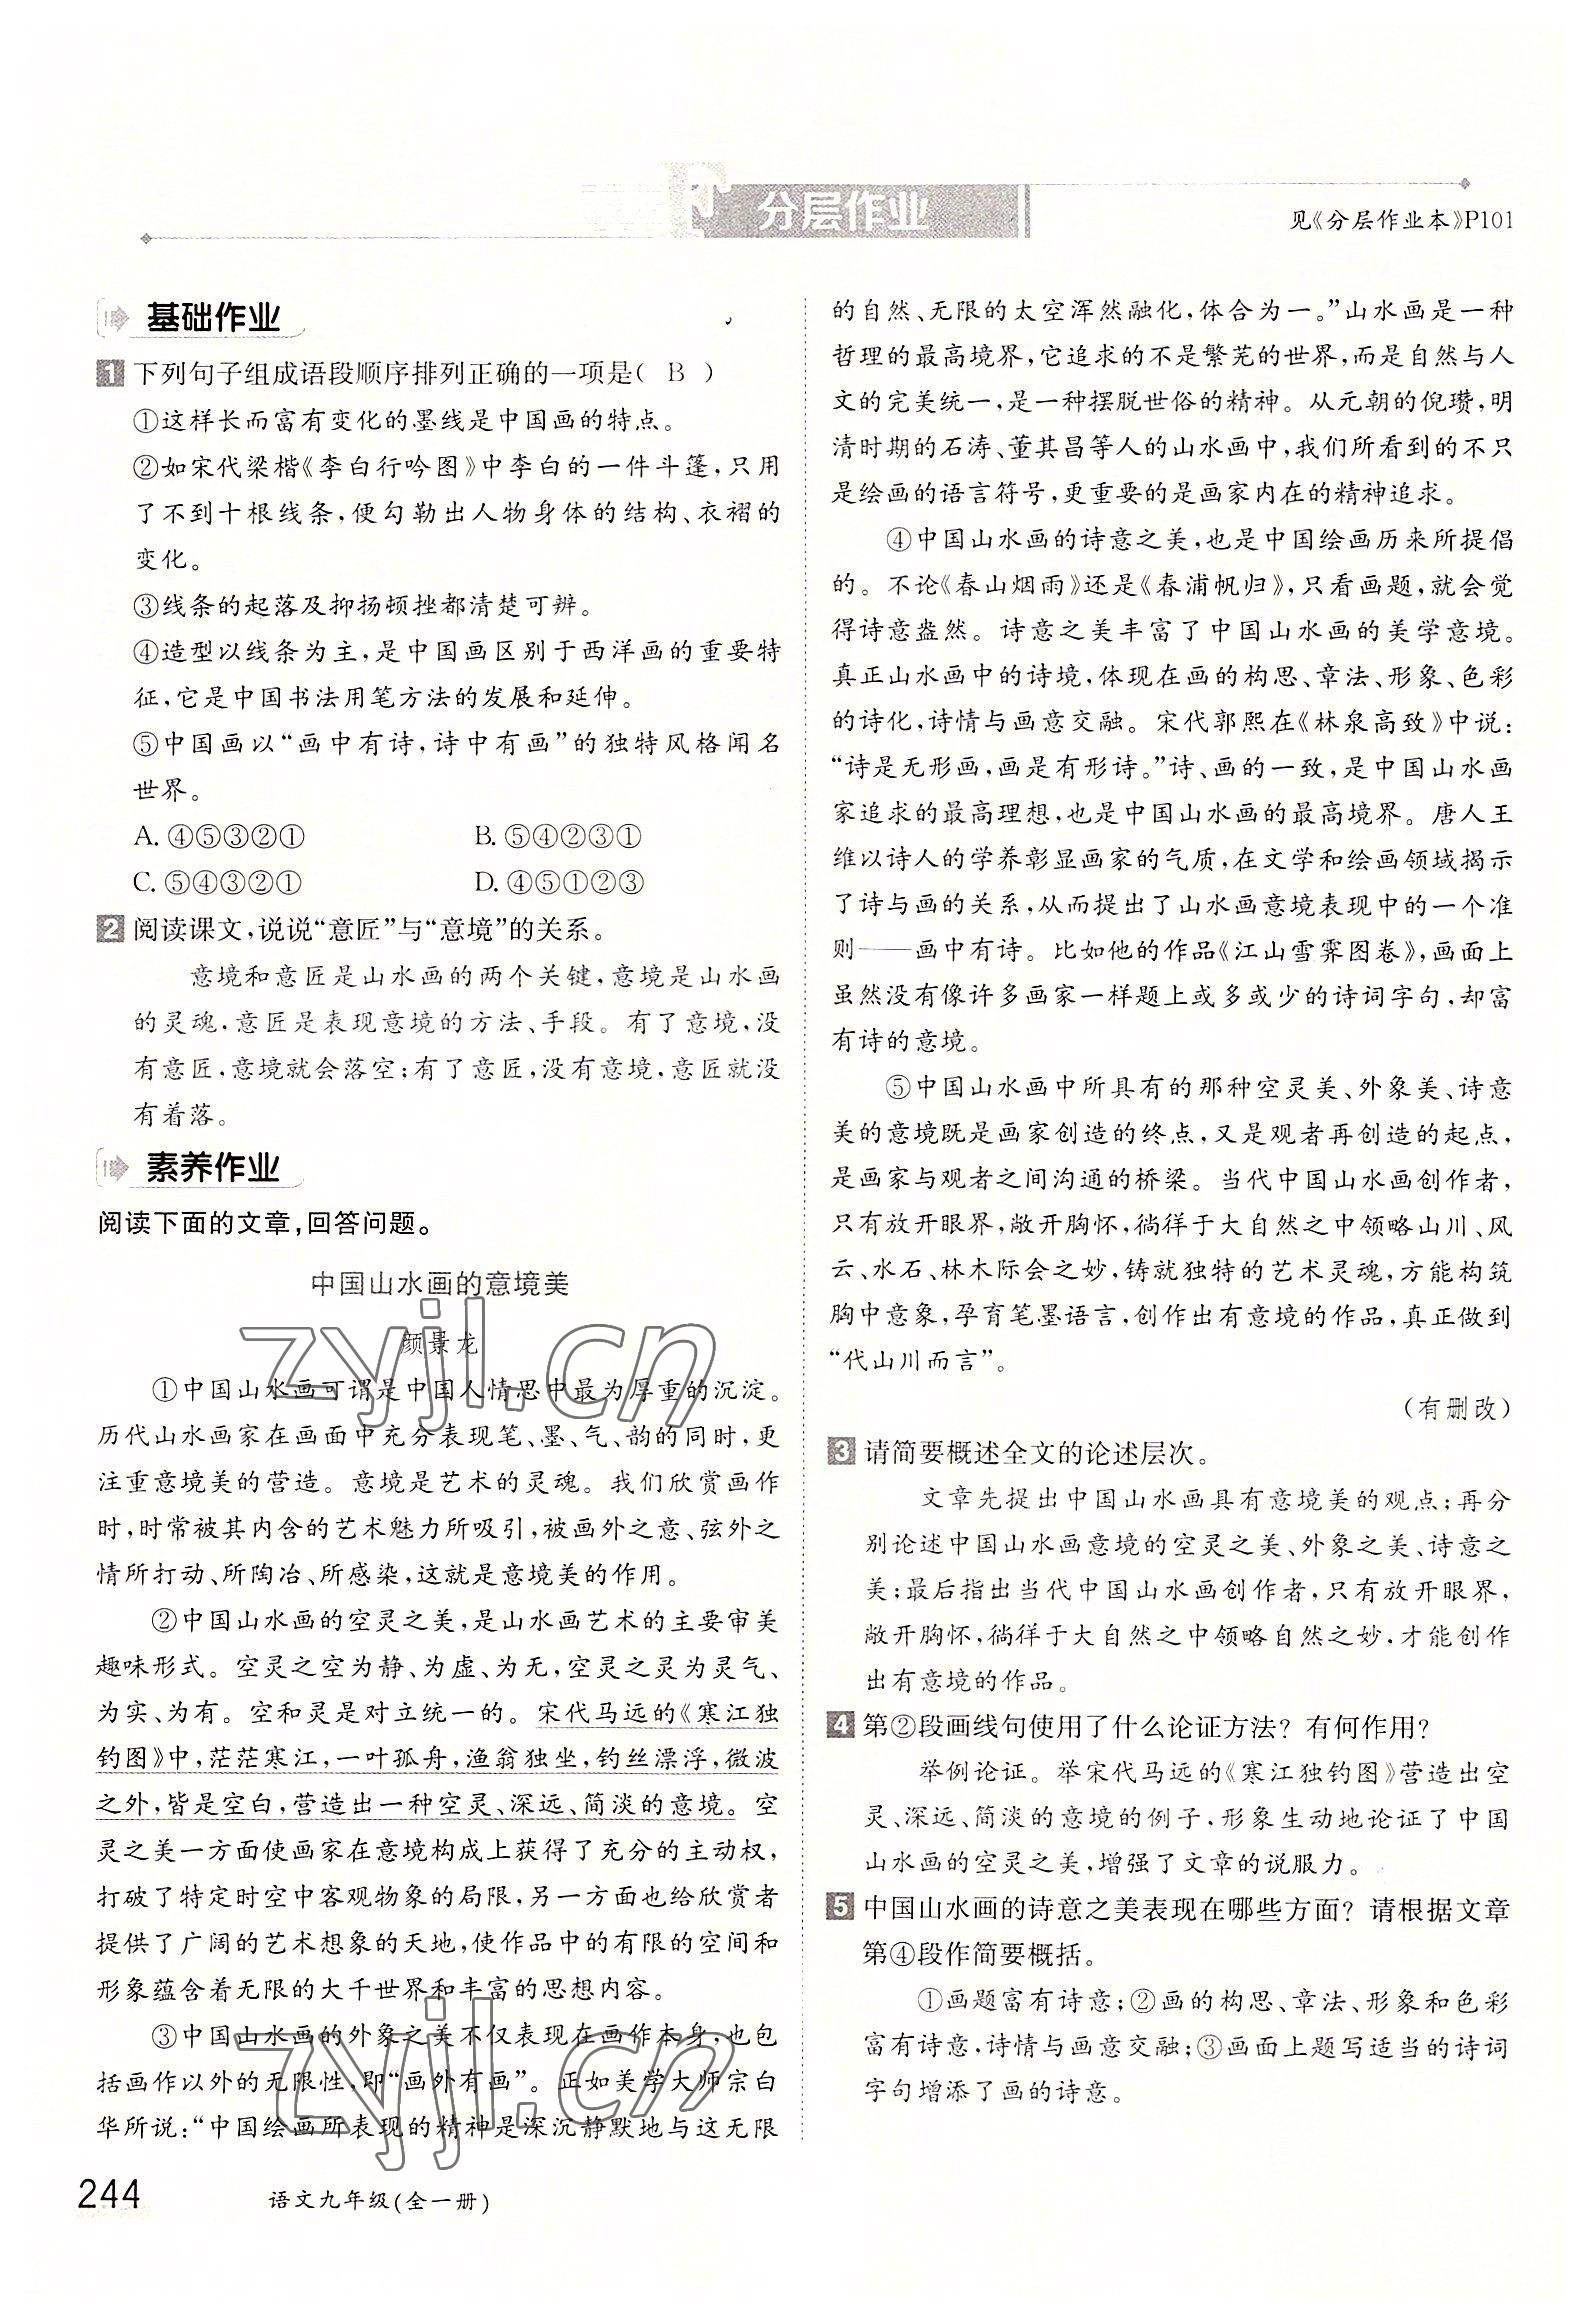 分层作业
见《分层作业本》P101
基础作业
1 下列句子组成语段顺序排列正确的一项是( B )
①这样长而富有变化的墨线是中国画的特点。
②如宋代梁楷《李白行吟图》中李白的一件斗篷,只用
了不到十根线条,便勾勒出人物身体的结构、衣褶的
变化。
③线条的起落及抑扬顿挫都清楚可辨。
④造型以线条为主,是中国画区别于西洋画的重要特
征,它是中国书法用笔方法的发展和延伸。
⑤中国画以“画中有诗,诗中有画”的独特风格闻名
世界。
A. ④⑤③②① B. ⑤④②③①
C. ⑤④③②① D. ④⑤①②③
2 阅读课文,说说“意匠”与“意境”的关系。
意境和意匠是山水画的两个关键,意境是山水画
的灵魂,意匠是表现意境的方法、手段。有了意境,没
有意匠,意境就会落空;有了意匠,没有意境,意匠就没
有着落。
素养作业
阅读下面的文章,回答问题。
中国山水画的意境美
颜景龙
①中国山水画可谓是中国人情思中最为厚重的沉淀。
历代山水画家在画面中充分表现笔、墨、气、韵的同时,更
注重意境美的营造。意境是艺术的灵魂。我们欣赏画作
时,时常被其内含的艺术魅力所吸引,被画外之意、弦外之
情所打动、所陶冶、所感染,这就是意境美的作用。
②中国山水画的空灵之美,是山水画艺术的主要审美
趣味形式。空灵之空为静、为虚、为无,空灵之灵为灵气、
为实、为有。空和灵是对立统一的。宋代马远的《寒江独
钓图》中,茫茫寒江,一叶孤舟,渔翁独坐,钓丝漂浮,微波
之外,皆是空白,营造出一种空灵、深远、简淡的意境。空
灵之美一方面使画家在意境构成上获得了充分的主动权,
打破了特定时空中客观物象的局限,另一方面也给欣赏者
提供了广阔的艺术想象的天地,使作品中的有限的空间和
形象蕴含着无限的大千世界和丰富的思想内容。
③中国山水画的外象之美不仅表现在画作本身,也包
括画作以外的无限性,即“画外有画”。正如美学大师宗白
华所说:“中国绘画所表现的精神是深沉静默地与这无限
的自然、无限的太空浑然融化,体合为一。”山水画是一种
哲理的最高境界,它追求的不是繁芜的世界,而是自然与人
文的完美统一,是一种摆脱世俗的精神。从元朝的倪瓒,明
清时期的石涛、董其昌等人的山水画中,我们所看到的不只
是绘画的语言符号,更重要的是画家内在的精神追求。
④中国山水画的诗意之美,也是中国绘画历来所提倡
的。不论《春山烟雨》还是《春浦帆归》,只看画题,就会觉
得诗意盎然。诗意之美丰富了中国山水画的美学意境。
真正山水画中的诗境,体现在画的构思、章法、形象、色彩
的诗化,诗情与画意交融。宋代郭熙在《林泉高致》中说:
“诗是无形画,画是有形诗。”诗、画的一致,是中国山水画
家追求的最高理想,也是中国山水画的最高境界。唐人王
维以诗人的学养彰显画家的气质,在文学和绘画领域揭示
了诗与画的关系,从而提出了山水画意境表现中的一个准
则——画中有诗。比如他的作品《江山雪霁图卷》,画面上
虽然没有像许多画家一样题上或多或少的诗词字句,却富
有诗的意境。
⑤中国山水画中所具有的那种空灵美、外象美、诗意
美的意境既是画家创造的终点,又是观者再创造的起点,
是画家与观者之间沟通的桥梁。当代中国山水画创作者,
只有放开眼界,敞开胸怀,徜徉于大自然之中领略山川、风
云、水石、林木际会之妙,铸就独特的艺术灵魂,方能构筑
胸中意象,孕育笔墨语言,创作出有意境的作品,真正做到
“代山川而言”。
(有删改)
3 请简要概述全文的论述层次。
文章先提出中国山水画具有意境美的观点;再分
别论述中国山水画意境的空灵之美、外象之美、诗意之
美;最后指出当代中国山水画创作者,只有放开眼界,
敞开胸怀,徜徉于大自然之中领略自然之妙,才能创作
出有意境的作品。
4 第②段画线句使用了什么论证方法?有何作用?
举例论证。举宋代马远的《寒江独钓图》营造出空
灵、深远、简淡的意境的例子,形象生动地论证了中国
山水画的空灵之美,增强了文章的说服力。
5 中国山水画的诗意之美表现在哪些方面?请根据文章
第④段作简要概括。
①画题富有诗意;②画的构思、章法、形象和色彩
富有诗意,诗情与画意交融;③画面上题写适当的诗词
字句增添了画的诗意。
zyjl.cn
zyjl.cn
244 语文九年级(全一册)